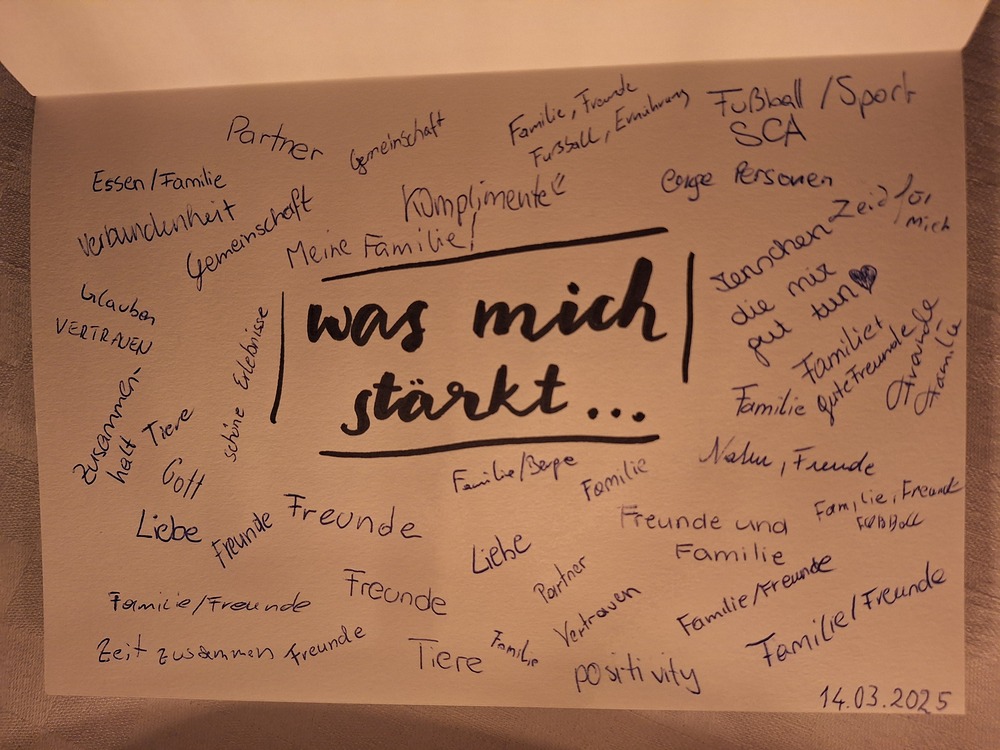 Partner
Gemeinschaft
Familie, Freunde
Fussball, Ernährung
Fußball / Sport
SCA
Essen/Familie
Komplimente
enge Personen
Zeid für
mich
Verbundenheit
Gemeinschaft
Meine Familie!
Menschen
die mir
gut tun
Glauben
VERTRAUEN
schöne Erlebnisse
was mich
stärkt...
Familie
gute Freunde
Freunde
Familie
Familie
Zusammen-
halt
Tiere
Gott
Familie/Berge
Familie
Natur, Freunde
Liebe
Freunde
Freunde
Liebe
Freunde und
Familie
Familie, Freunde
Fußball
Familie/Freunde
Freunde
Partner
Vertrauen
Familie/Freunde
Familie/Freunde
Zeit zusammen
Freunde
Tiere
Familie
positivity
14.03.2025